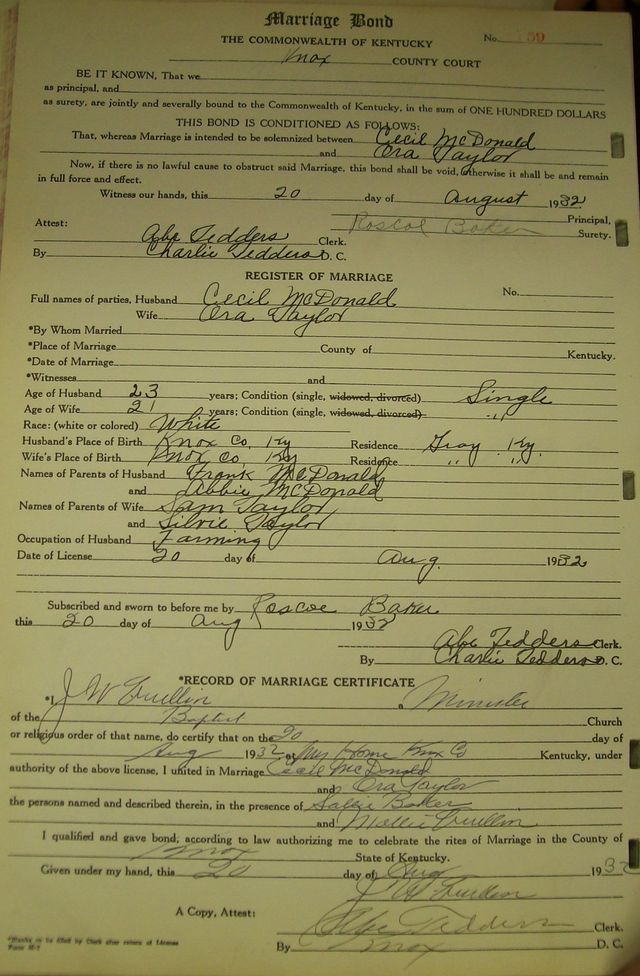 Marriage Bond
THE COMMONWEALTH OF KENTUCKY
No. 159
Knox COUNTY COURT
BE IT KNOWN, That we
as principal, and
as surety, are jointly and severally bound to the Commonwealth of Kentucky, in the sum of ONE HUNDRED DOLLARS
THIS BOND IS CONDITIONED AS FOLLOWS:
That, whereas Marriage is intended to be solemnized between Cecil McDonald
and Ora Taylor
Now, if there is no lawful cause to obstruct said Marriage, this bond shall be void, otherwise it shall be and remain
in full force and effect.
Witness our hands, this 20 day of August 1932
Principal,
Roscoe Baker Surety.
Attest:
Abe Tedders Clerk.
By Charlie Tedders D. C.
REGISTER OF MARRIAGE
Full names of parties, Husband Cecil McDonald No.
Wife Ora Taylor
*By Whom Married
*Place of Marriage County of Kentucky.
*Date of Marriage
*Witnesses and
Age of Husband 23 years; Condition (single, widowed, divorced) Single
Age of Wife 21 years; Condition (single, widowed, divorced) "
Race: (white or colored) White
Husband's Place of Birth Knox Co, Ky Residence Gray, Ky.
Wife's Place of Birth Knox Co, Ky Residence " "
Names of Parents of Husband Frank McDonald
and Abbie McDonald
Names of Parents of Wife Sam Taylor
and Silvie Taylor
Occupation of Husband Farming
Date of License 20 day of Aug 1932
Subscribed and sworn to before me by Roscoe Baker
this 20 day of Aug 1932
Abe Tedders Clerk.
By Charlie Tedders D. C.
*RECORD OF MARRIAGE CERTIFICATE
*I J W a Minister
of the Baptist Church
or religious order of that name, do certify that on the 20 day of
Aug 1932 at My Home Knox Co Kentucky, under
authority of the above license, I united in Marriage Cecil McDonald
and Ora Taylor
the persons named and described therein, in the presence of Sallie Baker
and Mollie
I qualified and gave bond, according to law authorizing me to celebrate the rites of Marriage in the County of
Knox State of Kentucky.
Given under my hand, this 20 day of Aug 1932
J W
A Copy, Attest: Abe Tedders Clerk.
By Knox D. C.
*Blanks to be filled by Clerk after return of License